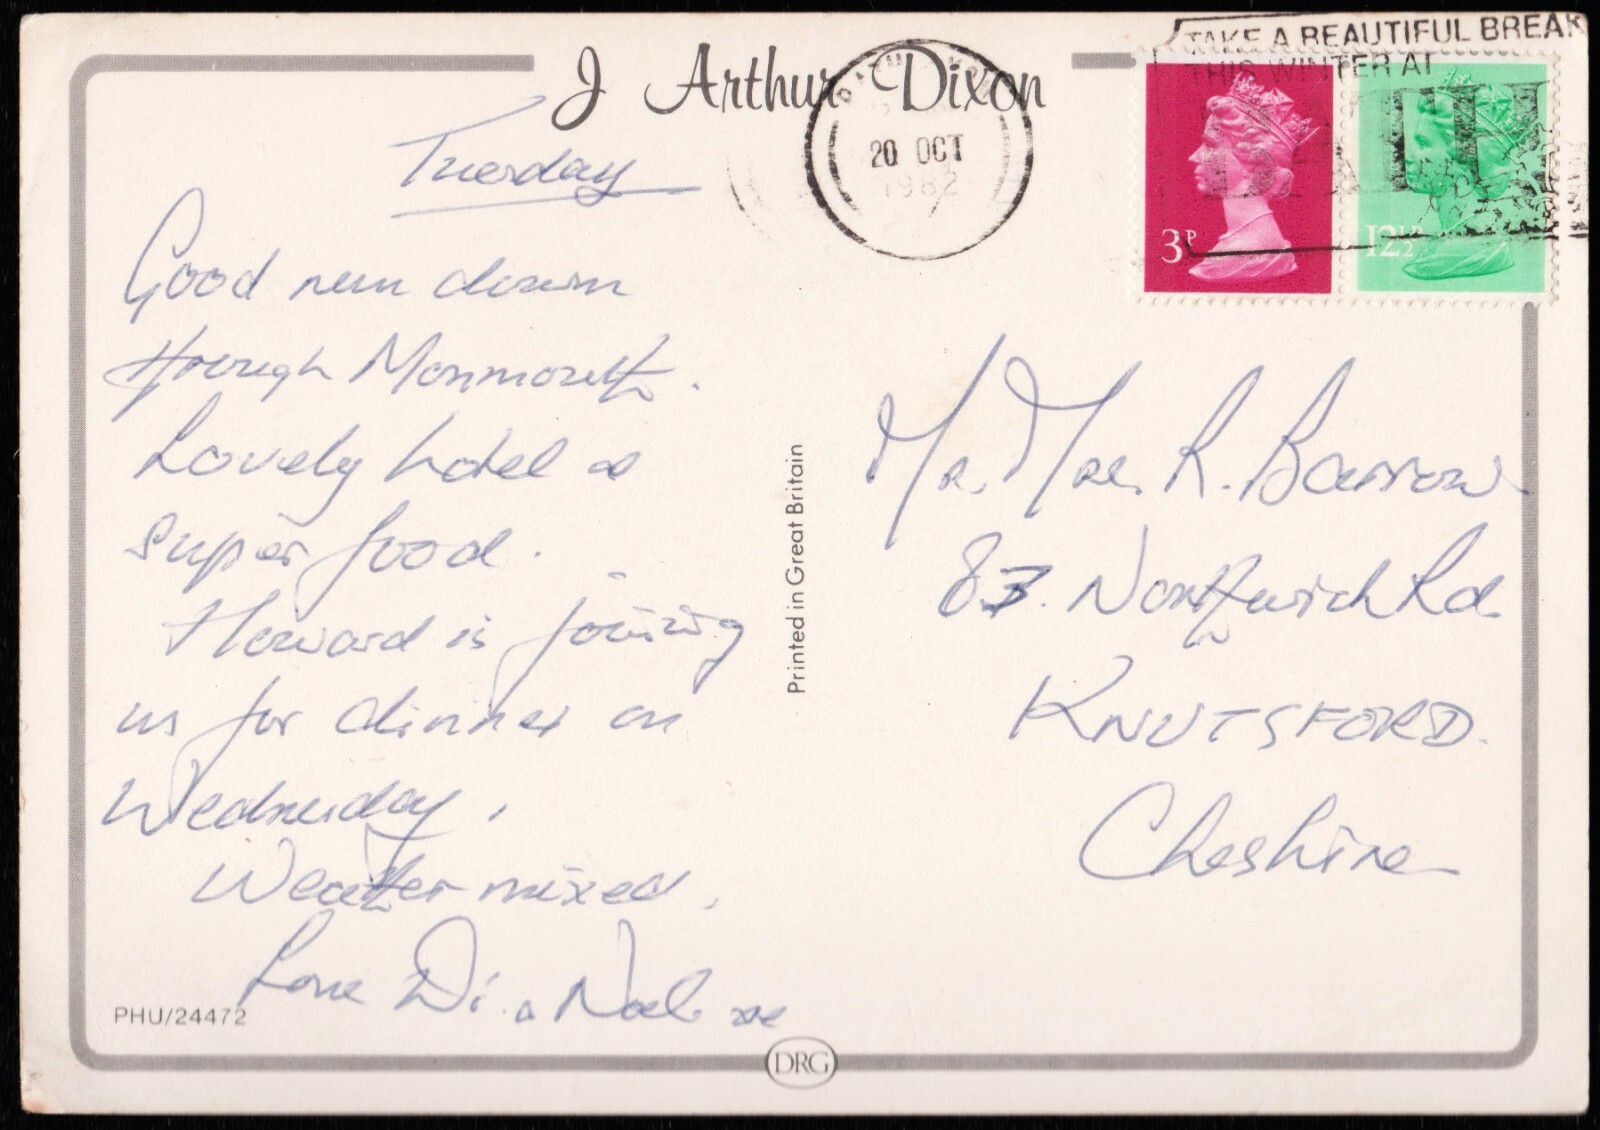 J Arthur Dixon
TAKE A BEAUTIFUL BREAK
THIS WINTER AT
BATH
20 OCT
1982
3P
12½P
Tuesday
Good run down
through Monmouth.
Lovely hotel &
super food.
Howard is joining
us for dinner on
Wednesday.
Weather mixed.
Love Di. & Noel xx
Printed in Great Britain
Mr. Mrs. R. Barrow
83. Northwich Rd
KNUTSFORD.
Cheshire
PHU/24472
DRG